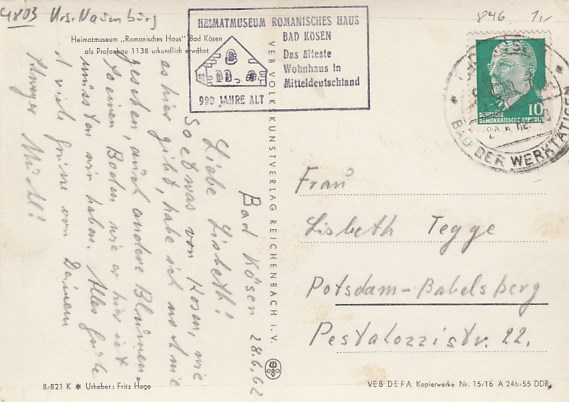 4803 Krs. Naumburg
846. 1,-
Heimatmuseum „Romanisches Haus" Bad Kösen
als Profanbau 1138 urkundlich erwähnt
HEIMATMUSEUM ROMANISCHES HAUS
BAD KÖSEN
Das älteste
Wohnhaus in
Mitteldeutschland
990 JAHRE ALT
10
DEMOKRATISCHE REPUBLIK
BAD DER WERKTÄTIGEN
Bad Kösen 28.6.62
Liebe Lisbeth!
So etwas von Rosen, wie
es hier gibt, habe ich noch nie
gesehen, auch andere Blumen.
So einen Boden wie er hier ist
müssten wir haben. Alles Gute
u viele Grüße von Deinem
VEB VOLKSKUNSTVERLAG REICHENBACH I. V.
Frau
Lisbeth Tegge
Potsdam-Babelsberg
Pestalozzistr. 22.
8/821 K * Urheber: Fritz Hege
VEB DEFA Kopierwerke Nr. 15/16 A 246/55 DDR